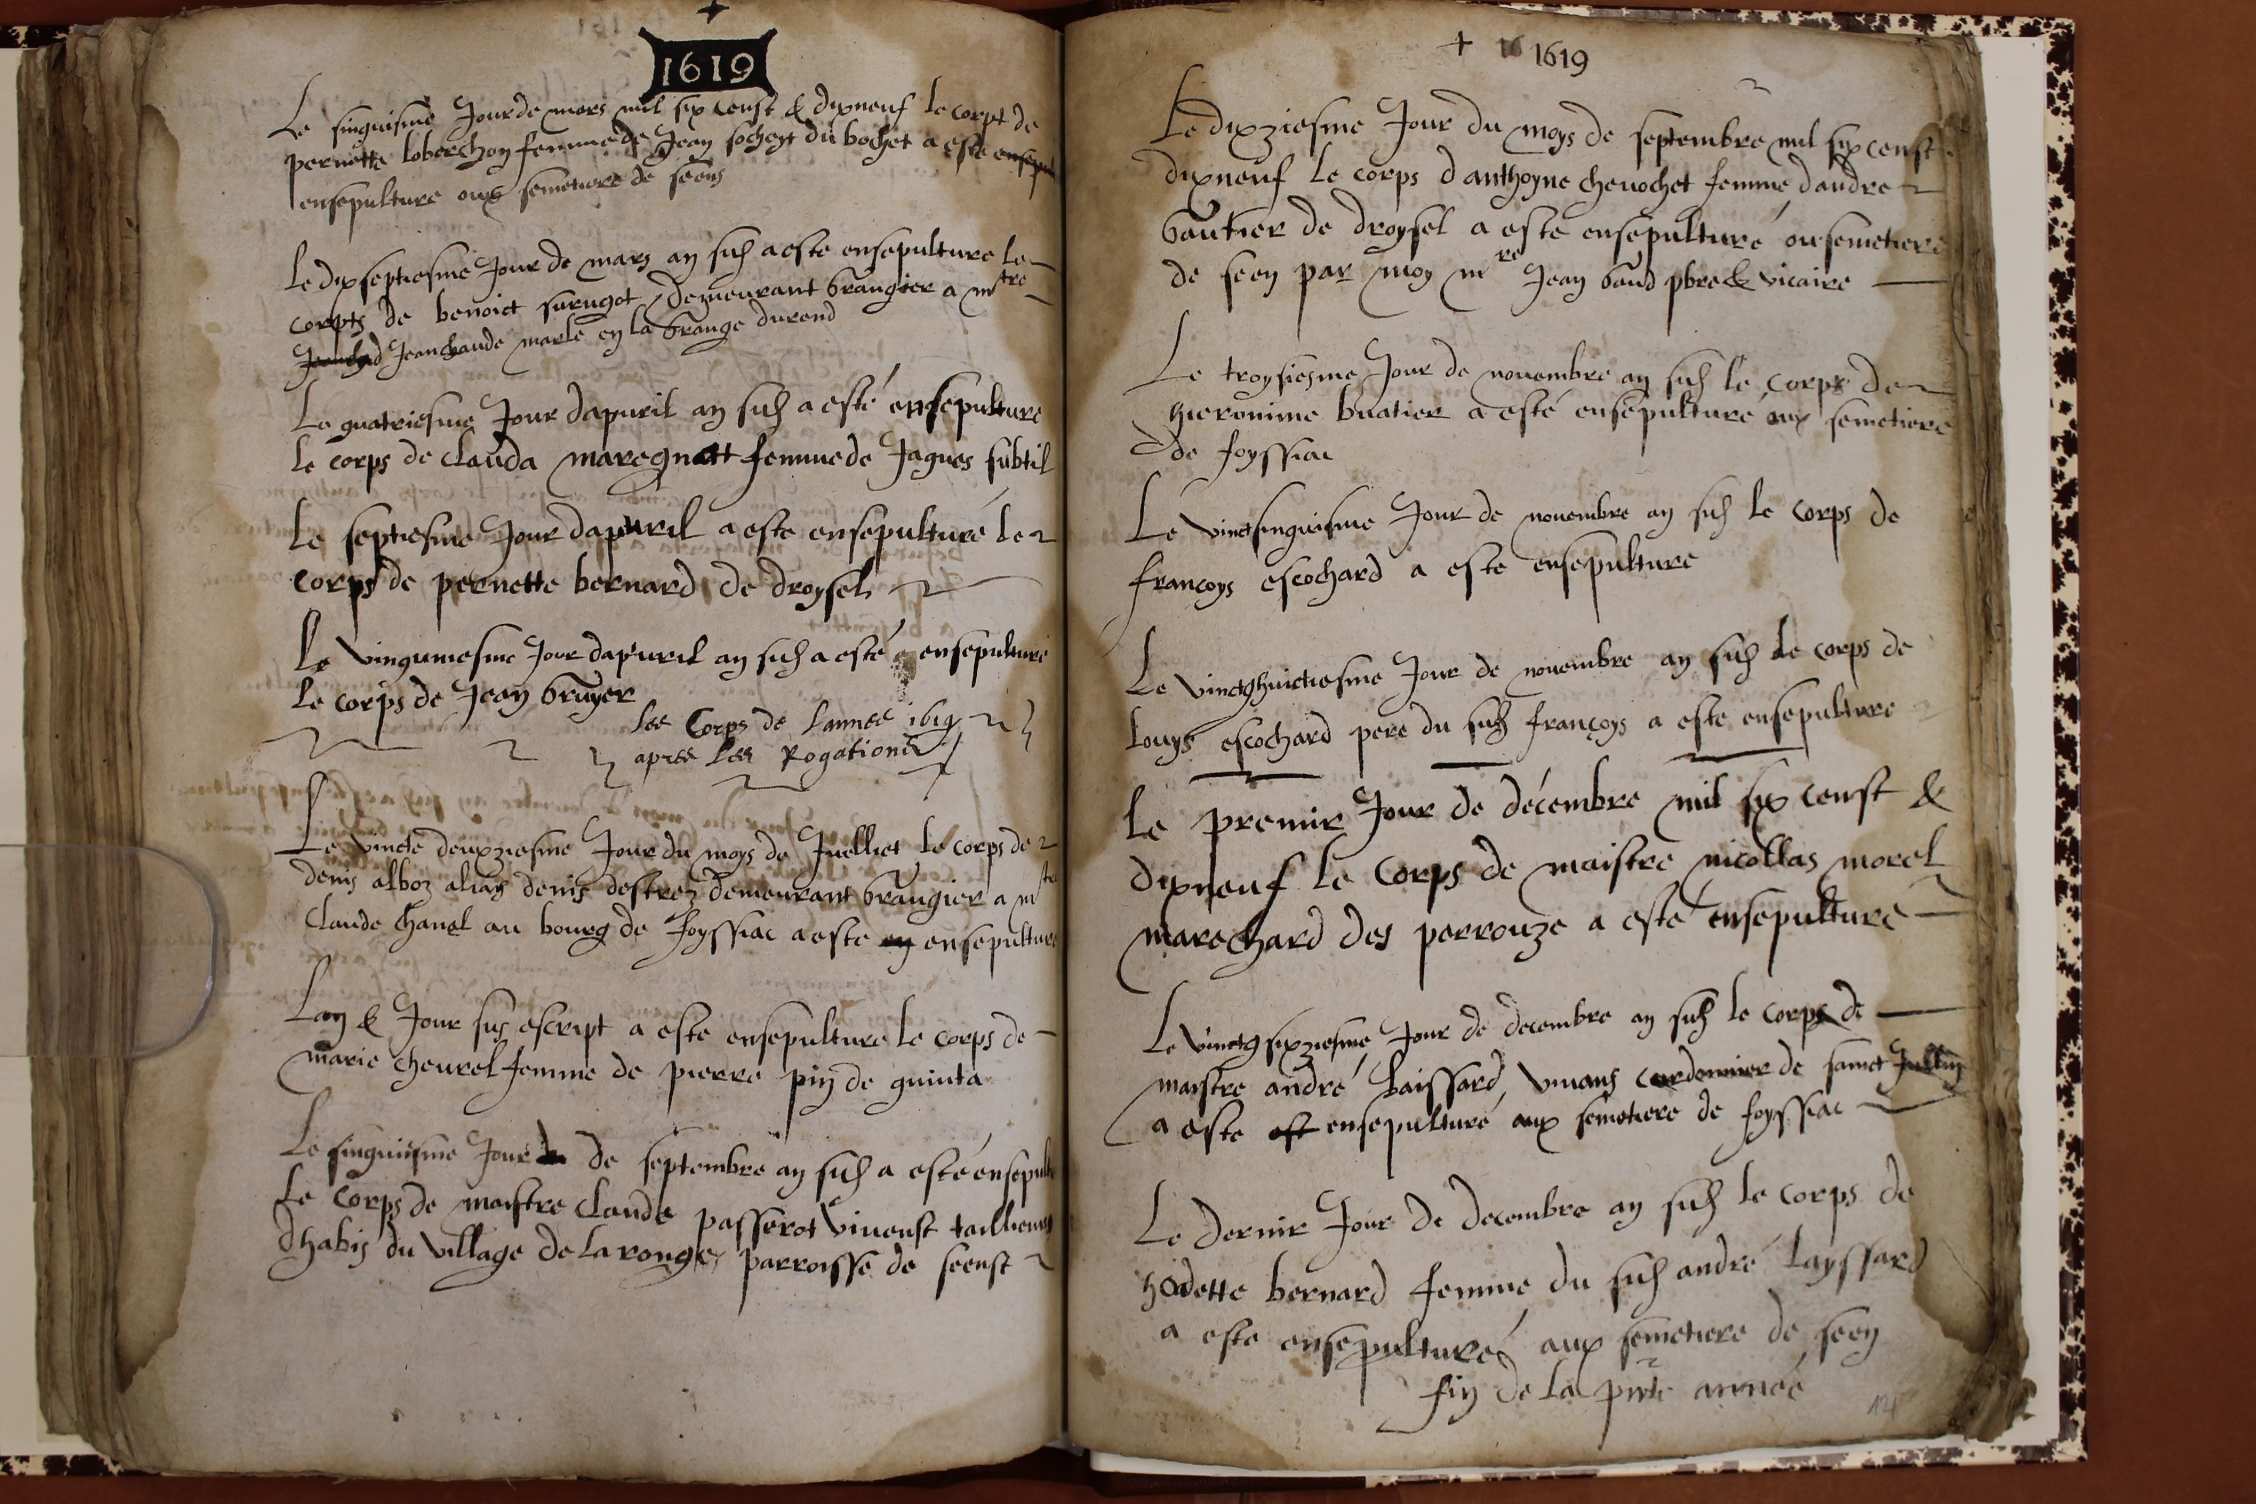 1619
Le sinquisme Jour de mars mil six censt & dixneuf le corpt de
pernette loberchon femme de Jean sochest du bochet a este
ensepulture oux semetiere de seens
Le dixseptiesme Jour de mars an sus a este ensepulture le
corpts de benoict surugot demeurant grangier a mtre
Jean claude marle en la grange durand
Le quatriesme Jour dapuril an sus a esté ensepulture
le corps de clauda maregnett femme de Jaques subtil
Le septiesme Jour dapuril a este ensepulturé le
corps de pernette bernard de droysel
Le vinguniesme Jour dapuril an sus a esté ensepulture
le corps de Jean gruyer
les Corps de lannee 1619
apres les Rogations
Le vincte deuxziesme Jour du moys de Juelliet le corps de
denis alboz alias denis destrez demeurant grangier a mtre
Claude chanel au bourg de foyssiac a este ensepulture
Lan & Jour sus escript a este ensepulture le corps de
marie cheurel femme de pierre pin de quinta
Le sinquiesme Jour de septembre an sus a esté ensepulte
Le Corps de maistre claude passerot viuenst tallieur
dhabis du village de la ronge parroisse de seenst
1619
Le dixziesme Jour du moys de septembre mil six censt
dixneuf le corps danthoyne cheuochet femme dandre
gautier de droysel a este ensepulturé ou semetiere
de seen par moy mre Jean gaud pbre & vicaire
Le troysiesme Jour de nouembre an sus le corps de
hieronime buatier a esté ensepulturé aux semetiere
de foyssiac
Le vinctsinquisme Jour de nouembre an sus le corps de
francoys escochard a este ensepulture
Le vinctghuictiesme Jour de nouembre an sus le corps de
louys escochard pere du sus françoys a este ensepulture
Le premir Jour de décembre mil six censt &
dixneuf le corps de maistre nicollas morel
marechard des perrouze a esté ensepulture
Le vinctg sixziesme Jour de decembre an sus le corps de
maistre andré laissard viuans cordonnier de sainct Jullin
a este ensepulturé aux semetiere de foyssiac
Le dernir Jour de decembre an sus le corps de
hodette bernard femme du sus andré layssard
a este ensepulturé aux semetiere de seen
fin de la pnte année
14